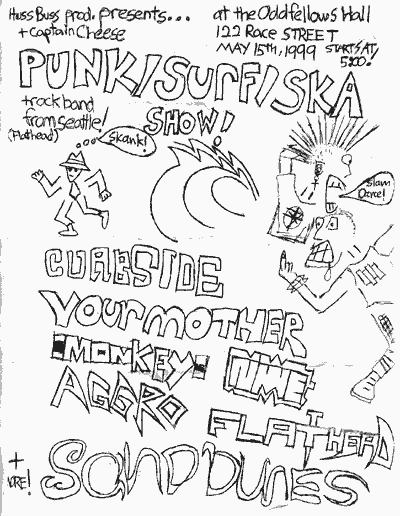 Huss Buss prod. presents...
+ Captain Cheese
at the Oddfellows Hall
122 Race STREET
MAY 15th, 1999 STARTS AT
5:00!
PUNK/SURF/SKA
SHOW!
+ rock band
from Seattle!
(Flathead)
Skank!
Slam
Dance!
CURBSIDE
YOUR MOTHER
MONKEY
AGGRO
FLATHEAD
+
SAND DUNES